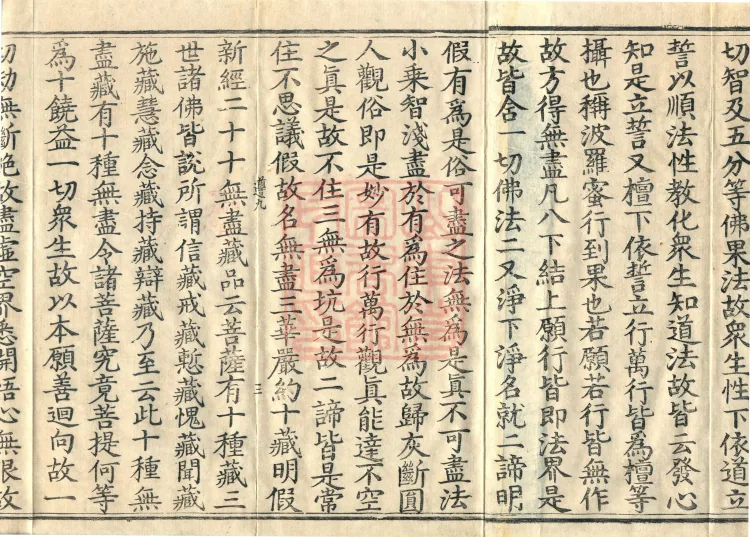 切智及五分等佛果法故衆生性下依道立
誓以順法性教化衆生知道法故皆云發心
知是立誓又檀下依誓立行萬行皆為檀等
攝也稱波羅蜜行到果也若願若行皆無作
故方得無盡凡八下結上願行皆即法界是
故皆含一切佛法二又淨下淨名就二諦明
假有爲是俗可盡之法無為是真不可盡法
小乘智淺盡於有為住於無為故歸灰斷圓
人觀俗即是妙有故行萬行觀眞能達不空
之眞是故不住三無為坑是故二諦皆是常
住不思議假故名無盡三華嚴約十藏明假
遵九
三
新經二十十無盡藏品云菩薩有十種藏三
世諸佛皆說所謂信藏戒藏慙藏愧藏聞藏
施藏慧藏念藏持藏辯藏乃至云此十種無
盡藏有十種無盡令諸菩薩究竟菩提何等
為十饒益一切衆生故以本願善迴向故一
切劫無斷絶故盡虛空界悉開悟心無限故